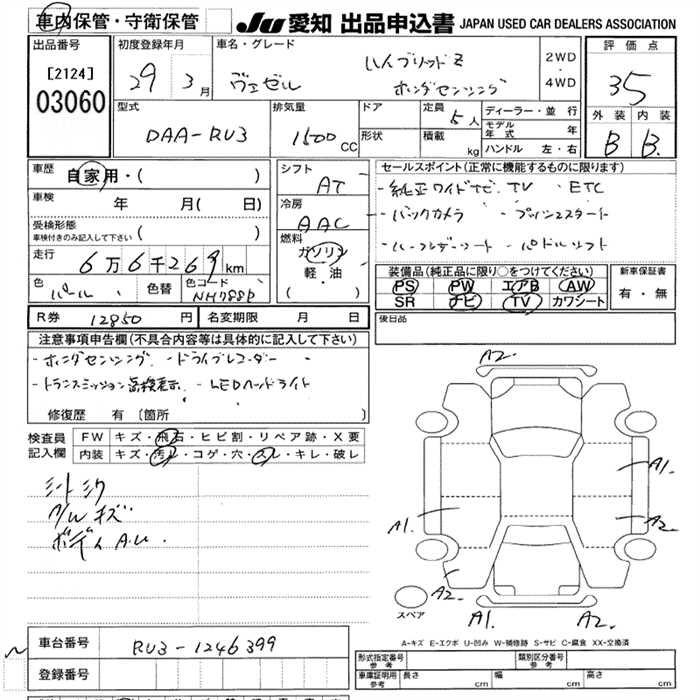 車内保管・守衛保管
JU 愛知 出品申込書 JAPAN USED CAR DEALERS ASSOCIATION
出品番号
[2124]
03060
初度登録年月
29年3月
車名・グレード
ヴェゼル
ハイブリッドZ
ホンダセンシング
2WD
・
4WD
評価点
35
外装 内装
B B
型式
DAA-RU3
排気量
1500cc
ドア
形状
定員 5人
積載 kg
ディーラー・並行
モデル年式 年
ハンドル 左・右
車歴 自家用・( )
車検 年 月( 日)
受検形態
車検付きのみ記入して下さい ( )
走行 6万6千269km
色 パール 色替 色コード NH788P
シフト
AT
冷房
AAC
燃料
ガソリン
軽・油
( )
セールスポイント(正常に機能するものに限ります)
・純正ワイドナビ、TV ・ETC
・バックカメラ ・プッシュスタート
・ハーフレザーシート ・パドルシフト
装備品(純正品に限り○をつけてください)
PS PW エアB AW
SR ナビ TV カワシート
新車保証書
有・無
後日品
R券 12850円 名変期限 月 日
注意事項申告欄(不具合内容等は具体的に記入して下さい)
・ホンダセンシング ・ドライブレコーダー
・トランスミッション 点検表示 ・LEDヘッドライト
修復歴 有 (箇所 )
検査員
記入欄
FW キズ・飛石・ヒビ割・リペア跡・X要
内装 キズ・汚レ・コゲ・穴・スレ・キレ・破レ
シートシワ
A/W キズ
ボディ A.U
A2.
A1.
A1.
A2.
A2.
A1.
A2.
スペア
A-キズ E-エクボ U-凹み W-補修跡 S-サビ C-腐食 XX-交換済
車台番号 RU3-1246399
登録番号
形式指定番号
参考
類別区分番号
参考
車庫証明用
参考
長さ cm 幅 cm 高さ cm